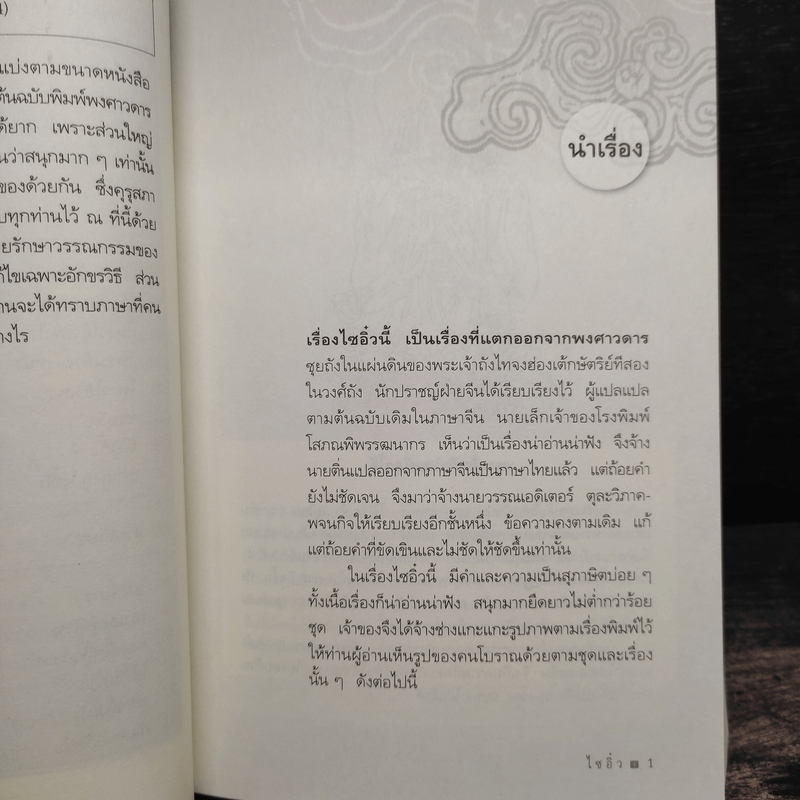 แบ่งตามขนาดหนังสือ
ต้นฉบับพิมพ์พงศาวดาร
ได้ยาก เพราะส่วนใหญ่
นว่าสนุกมาก ๆ เท่านั้น
ของด้วยกัน ซึ่งคุรุสภา
บทุกท่านไว้ ณ ที่นี้ด้วย
ยรักษาวรรณกรรมของ
ก้ไขเฉพาะอักขรวิธี ส่วน
านจะได้ทราบภาษาที่คน
างไร
นำเรื่อง
เรื่องไซอิ๋วนี้ เป็นเรื่องที่แตกออกจากพงศาวดาร
ซุยถังในแผ่นดินของพระเจ้าถังไทจงฮ่องเต้กษัตริย์ที่สอง
ในวงศ์ถัง นักปราชญ์ฝ่ายจีนได้เรียบเรียงไว้ ผู้แปลแปล
ตามต้นฉบับเดิมในภาษาจีน นายเล็กเจ้าของโรงพิมพ์
โสภณพิพรรฒนากร เห็นว่าเป็นเรื่องน่าอ่านน่าฟัง จึงจ้าง
นายติ่นแปลออกจากภาษาจีนเป็นภาษาไทยแล้ว แต่ถ้อยคำ
ยังไม่ชัดเจน จึงมาว่าจ้างนายวรรณเอดิเตอร์ ตุละวิภาค-
พจนกิจให้เรียบเรียงอีกชั้นหนึ่ง ข้อความคงตามเดิม แก้
แต่ถ้อยคำที่ขัดเขินและไม่ชัดให้ชัดขึ้นเท่านั้น
ในเรื่องไซอิ๋วนี้ มีคำและความเป็นสุภาษิตบ่อย ๆ
ทั้งเนื้อเรื่องก็น่าอ่านน่าฟัง สนุกมากยืดยาวไม่ต่ำกว่าร้อย
ชุด เจ้าของจึงได้จ้างช่างแกะแกะรูปภาพตามเรื่องพิมพ์ไว้
ให้ท่านผู้อ่านเห็นรูปของคนโบราณด้วยตามชุดและเรื่อง
นั้น ๆ ดังต่อไปนี้
ไซอิ๋ว 1